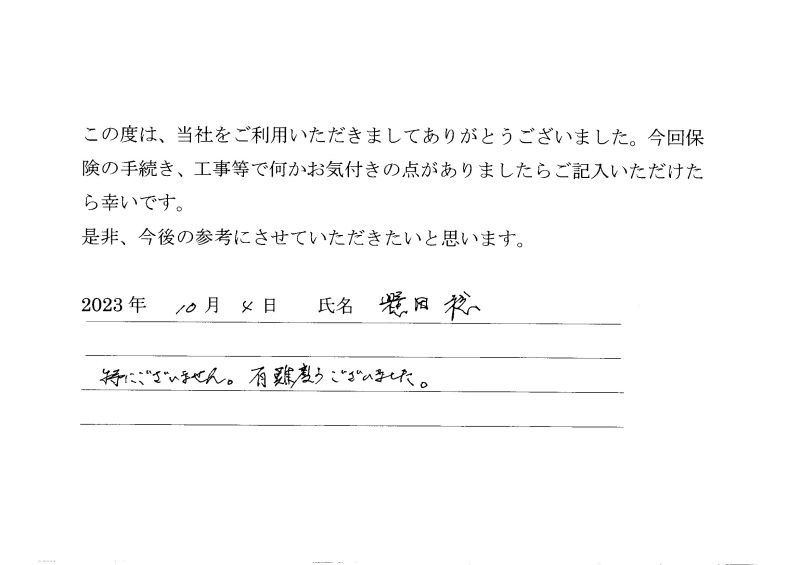 この度は、当社をご利用いただきましてありがとうございました。今回保
険の手続き、工事等で何かお気付きの点がありましたらご記入いただけた
ら幸いです。
是非、今後の参考にさせていただきたいと思います。
2023 年 10 月 4 日 氏名 懸田 総
特にございません。有難うございました。